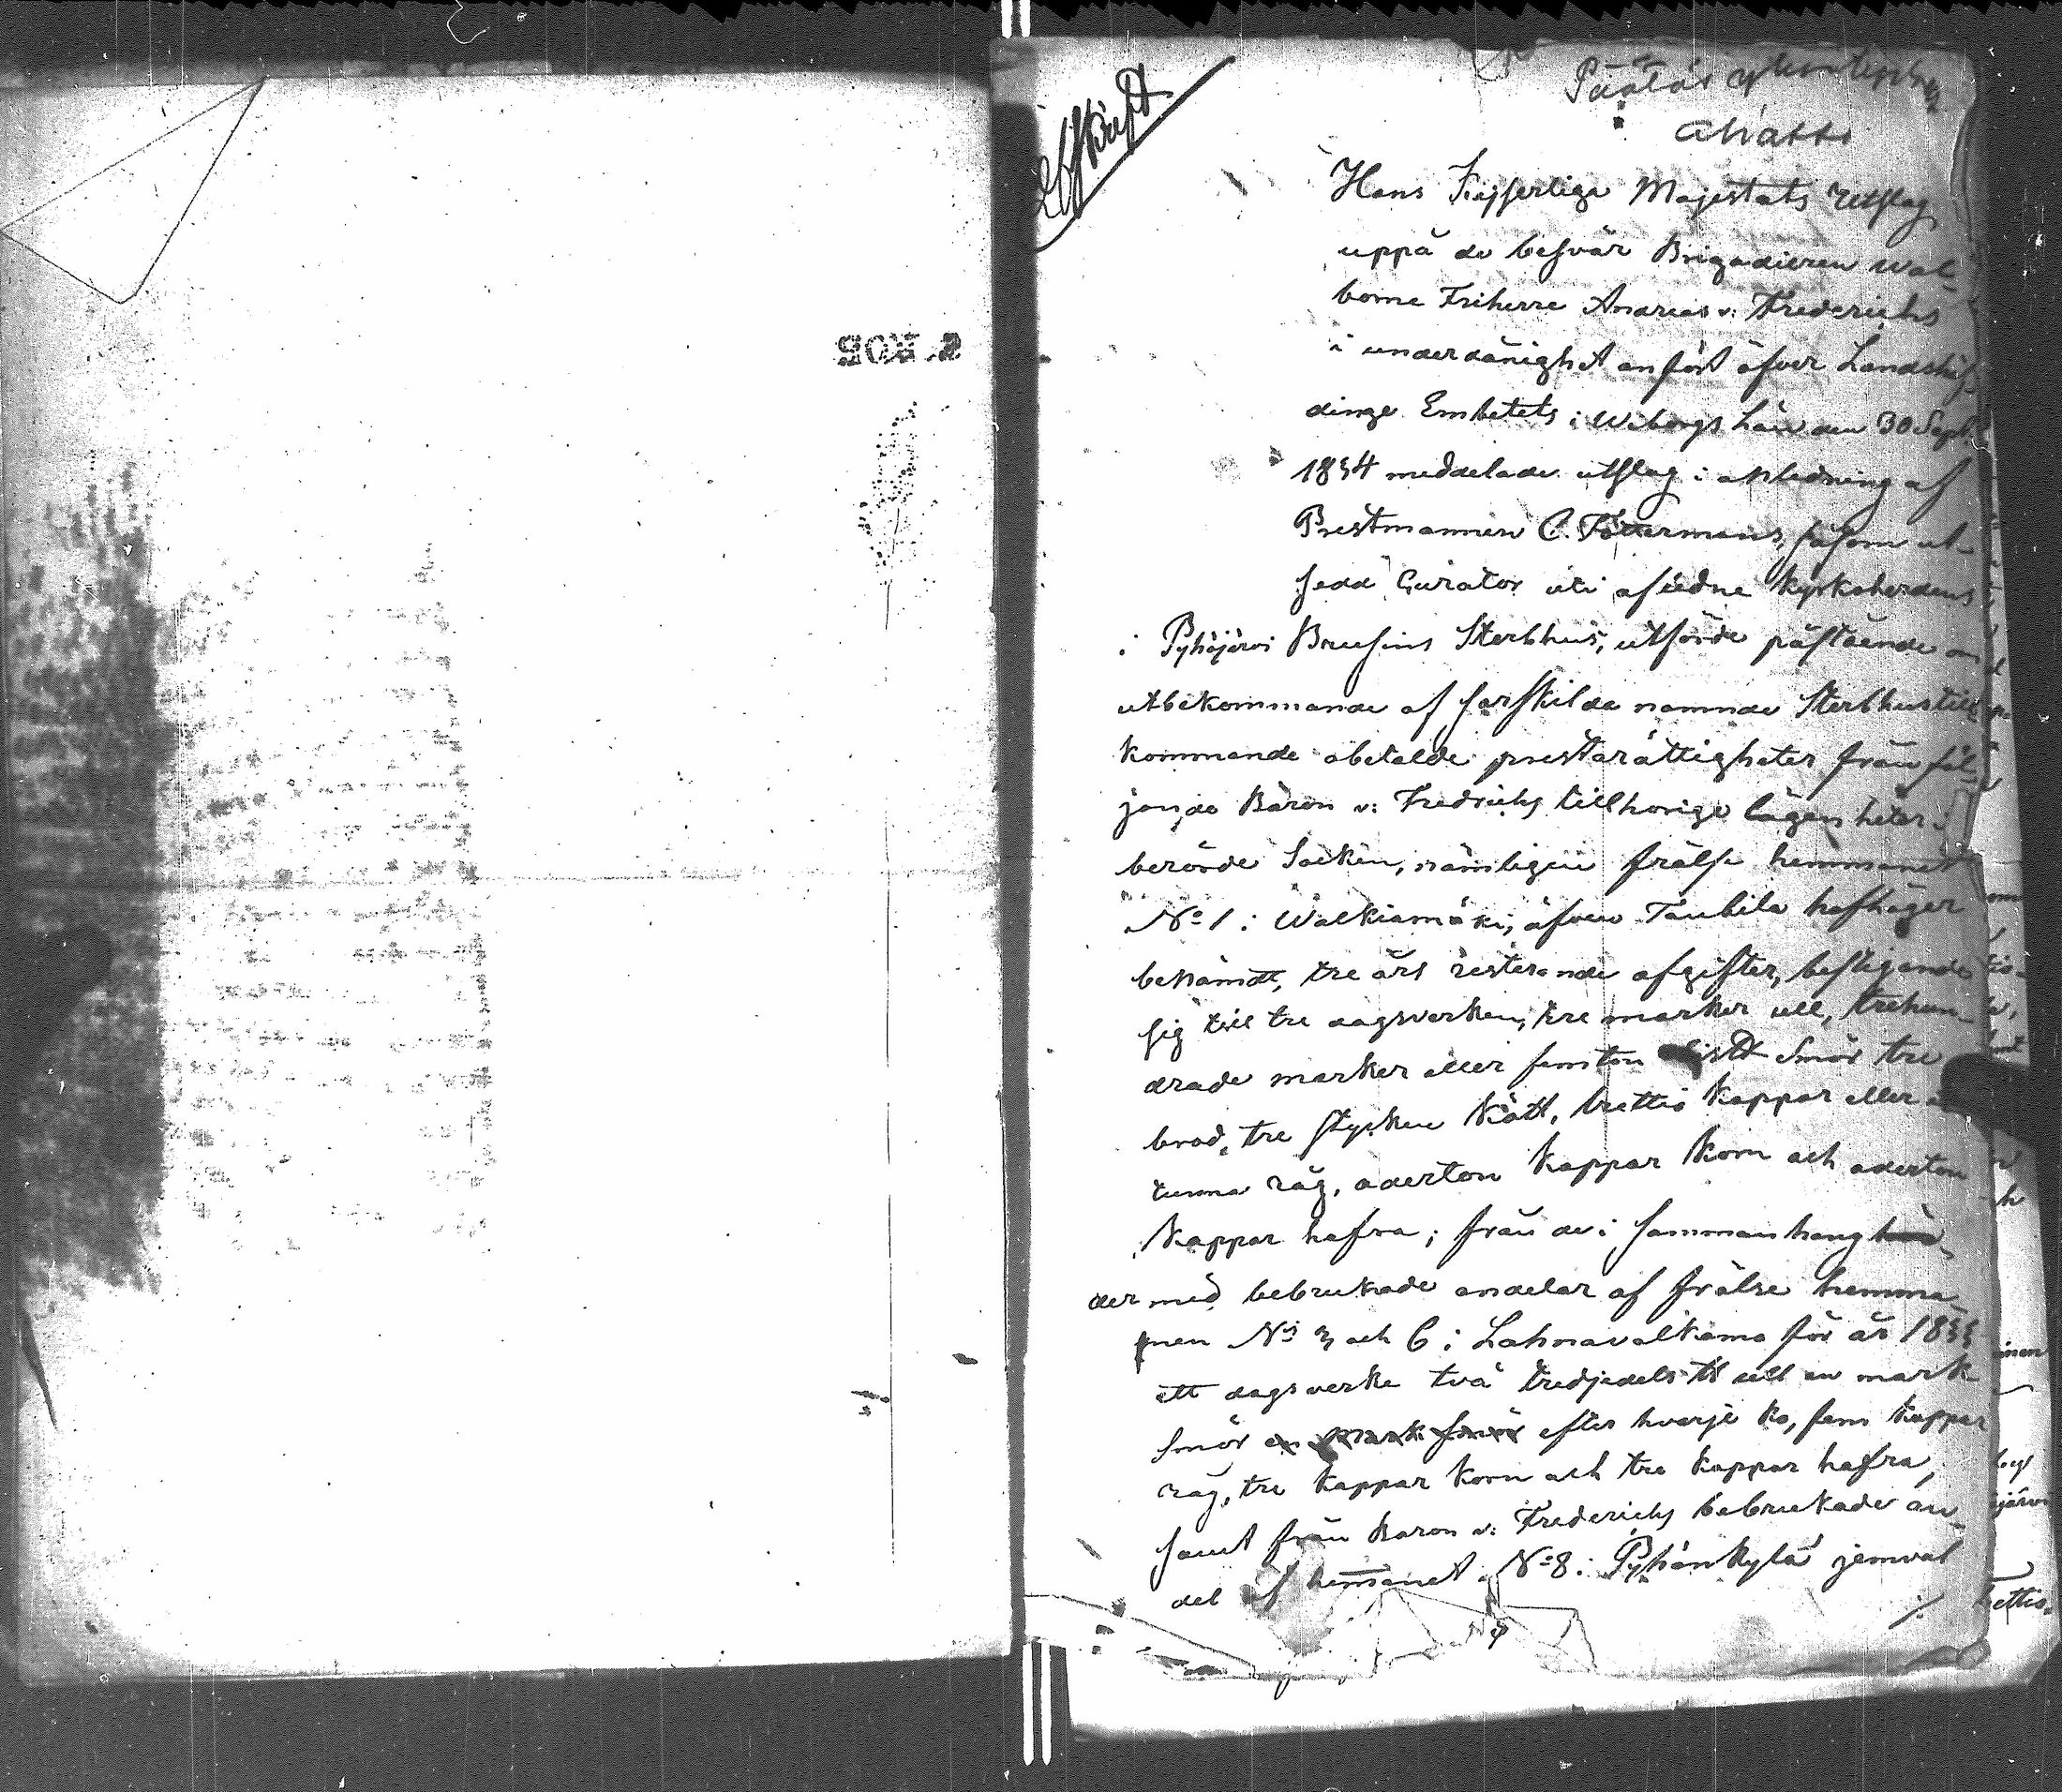 Afskrift
Päätös
Hans Kejserliga Majestäts Utslag
uppå de besvär Brigadieren wäl-
borne Friherre Andreas v: Frederichs
i underdånighet anfört öfver Landshöf-
dinge Embetets i Wiborgs Län den 30 Sept
1854 meddelade utslag i anledning af
Prestmannen C. Tottermans, såsom ut-
sedd Curator uti aflidne Kyrkoherdens
i Pyhäjärvi Brusins Sterbhus, utförde påstående om
utbekommande af särskilda nämnde Sterbhus till-
kommande obetalde prestarättigheter från föl-
jande Baron v: Fredrichs tillhörige lägenheter i
berörde Socken, nämligen frälse hemmanet
No 1 i Walkiamäki, äfven Taubila hofläger
benämdt, tre års resterande afgifter, bestigande
sig till tre dagsverken, tre marker ull, trehun-
drade marker eller femton Smör tre
bröd, tre stycken Kött, trettio Kappar eller
tunna råg, aderton Kappar Korn och aderton
Kappar hafra; från de i sammanhang
der med bebrukade andelar af frälse hemma-
nen No 3 och 6 i Lahnavalkama för år 1855
ett dagsverke två tredjedels ull en mark
smör en mark smör efter hvarje ko, fem Kappar
råg, tre Kappar Korn och tre Kappar hafra,
samt från Baron v: Frederichs bebrukade an-
del af hemmanet No 8 i Pyhänkylä jemväl